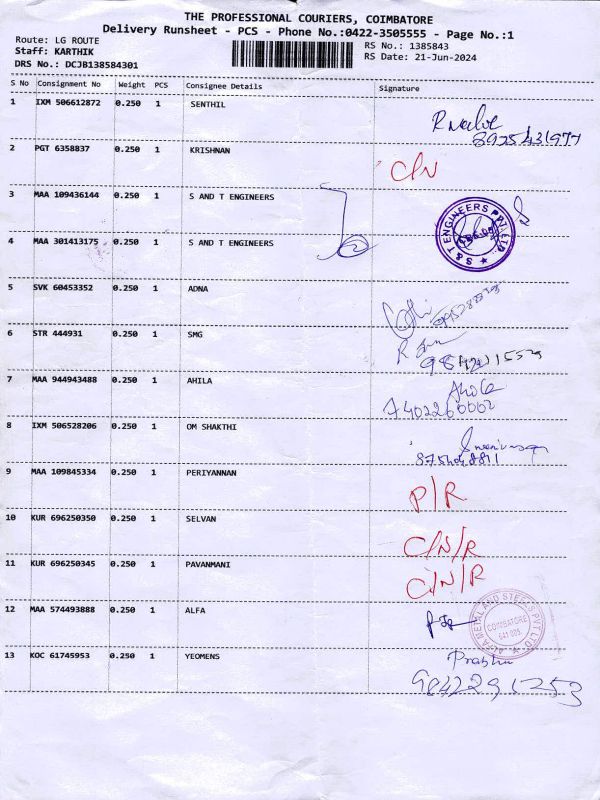 THE PROFESSIONAL COURIERS, COIMBATORE
Delivery Runsheet - PCS - Phone No.:0422-3505555 - Page No.:1
Route: LG ROUTE
Staff: KARTHIK
DRS No.: DCJB138584301
RS No.: 1385843
RS Date: 21-Jun-2024
S No Consignment No Weight PCS Consignee Details Signature
1 IXM 506612872 0.250 1 SENTHIL
8925431977
2 PGT 6358837 0.250 1 KRISHNAN C/N
3 MAA 109436144 0.250 1 S AND T ENGINEERS
S & T ENGINEERS PVT LTD
4 MAA 301413175 0.250 1 S AND T ENGINEERS
5 SVK 60453352 0.250 1 ADNA
6 STR 444931 0.250 1 SMG
7 MAA 944943488 0.250 1 AHILA
7402260002
8 IXM 506528206 0.250 1 OM SHAKTHI
9 MAA 109845334 0.250 1 PERIYANNAN P/R
10 KUR 696250350 0.250 1 SELVAN C/N/R
11 KUR 696250345 0.250 1 PAVANMANI C/N/R
12 MAA 574493888 0.250 1 ALFA
ALFA METAL AND STEELS PVT LTD
COIMBATORE
641 005
13 KOC 61745953 0.250 1 YEOMENS Prabhu
9842291253